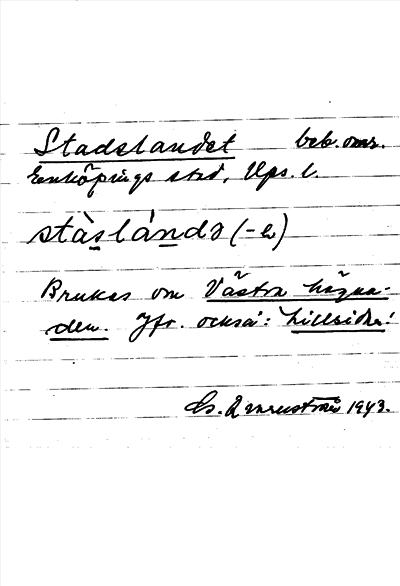 Stadslandet beb. omr.
Enköpings stad, Ups. l.
stàslándə (-ə)
Brukas om Västra högna-
den. Jfr. också: Lillsidan!
1943.